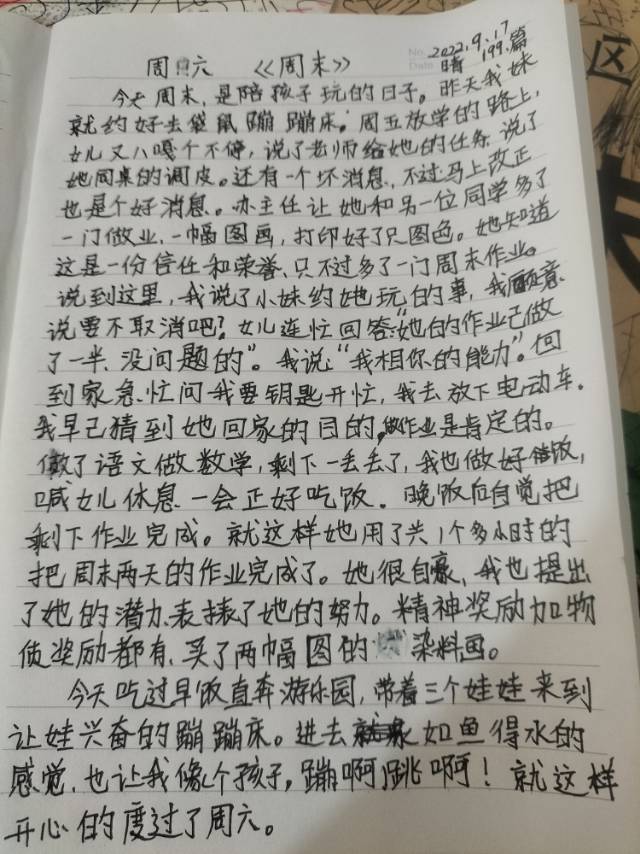 2022.9.17
No.
Date
晴 199.篇
周六 《周末》
今天周末,是陪孩子玩的日子。昨天我妹
就约好去袋鼠蹦蹦床。周五放学的路上,
女儿又八嘎个不停,说了老师给她的任务,说了
她同桌的调皮。还有一个坏消息,不过马上改正
也是个好消息。办主任让她和另一位同学多了
一门做业,一幅图画,打印好了只图色。她知道
这是一份信任和荣誉、只不过多了一门周末作业。
说到这里,我说了小妹约她玩的事,我顾意
说要不取消吧?女儿连忙回答:"她的作业已做
了一半、没问题的"。我说:"我相你的能力"。回
到家急忙问我要钥匙开忙,我去放下电动车.
我早已猜到她回家的目的,做作业是肯定的。
做了语文做数学,剩下一丢丢了,我也做好饭,
喊女儿休息一会正好吃饭.晚饭后自觉把
剩下作业完成。就这样她用了共1个多小时的
把周末两天的作业完成了。她很自豪,我也提出
了她的潜力、表揍了她的努力。精神奖励加物
质奖励都有、买了两幅图的染料画。
今天吃过早饭直奔游乐园,带着三个娃娃来到
让娃兴奋的蹦蹦床。进去如鱼得水的
感觉,也让我像个孩子,蹦啊跳啊!就这样
开心的度过了周六。
区